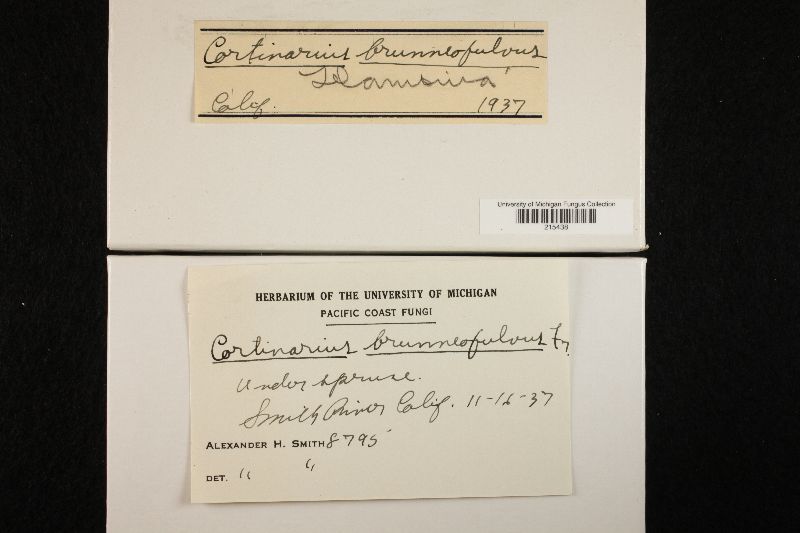 Cortinarius brunneofulvous
Calif. 1937
University of Michigan Fungus Collection
215438
HERBARIUM OF THE UNIVERSITY OF MICHIGAN
PACIFIC COAST FUNGI
Cortinarius brunneofulvous Fr.
Under spruce.
Smith River Calif. 11-16-37
ALEXANDER H. SMITH 8795
DET. " "